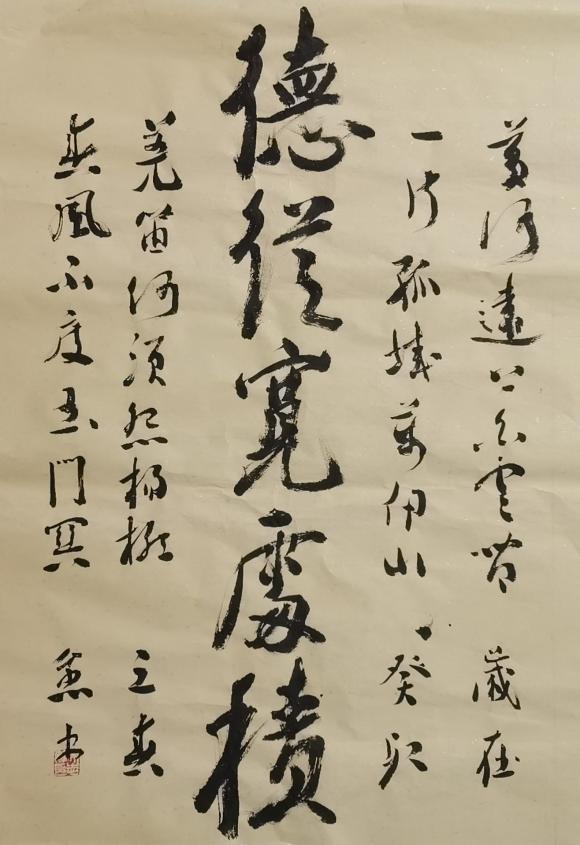 黄河遠上白雲間 歲在
一片孤城萬仞山 癸卯
德從寬處積
羌笛何須怨楊柳 之春
春風不度玉門關 書